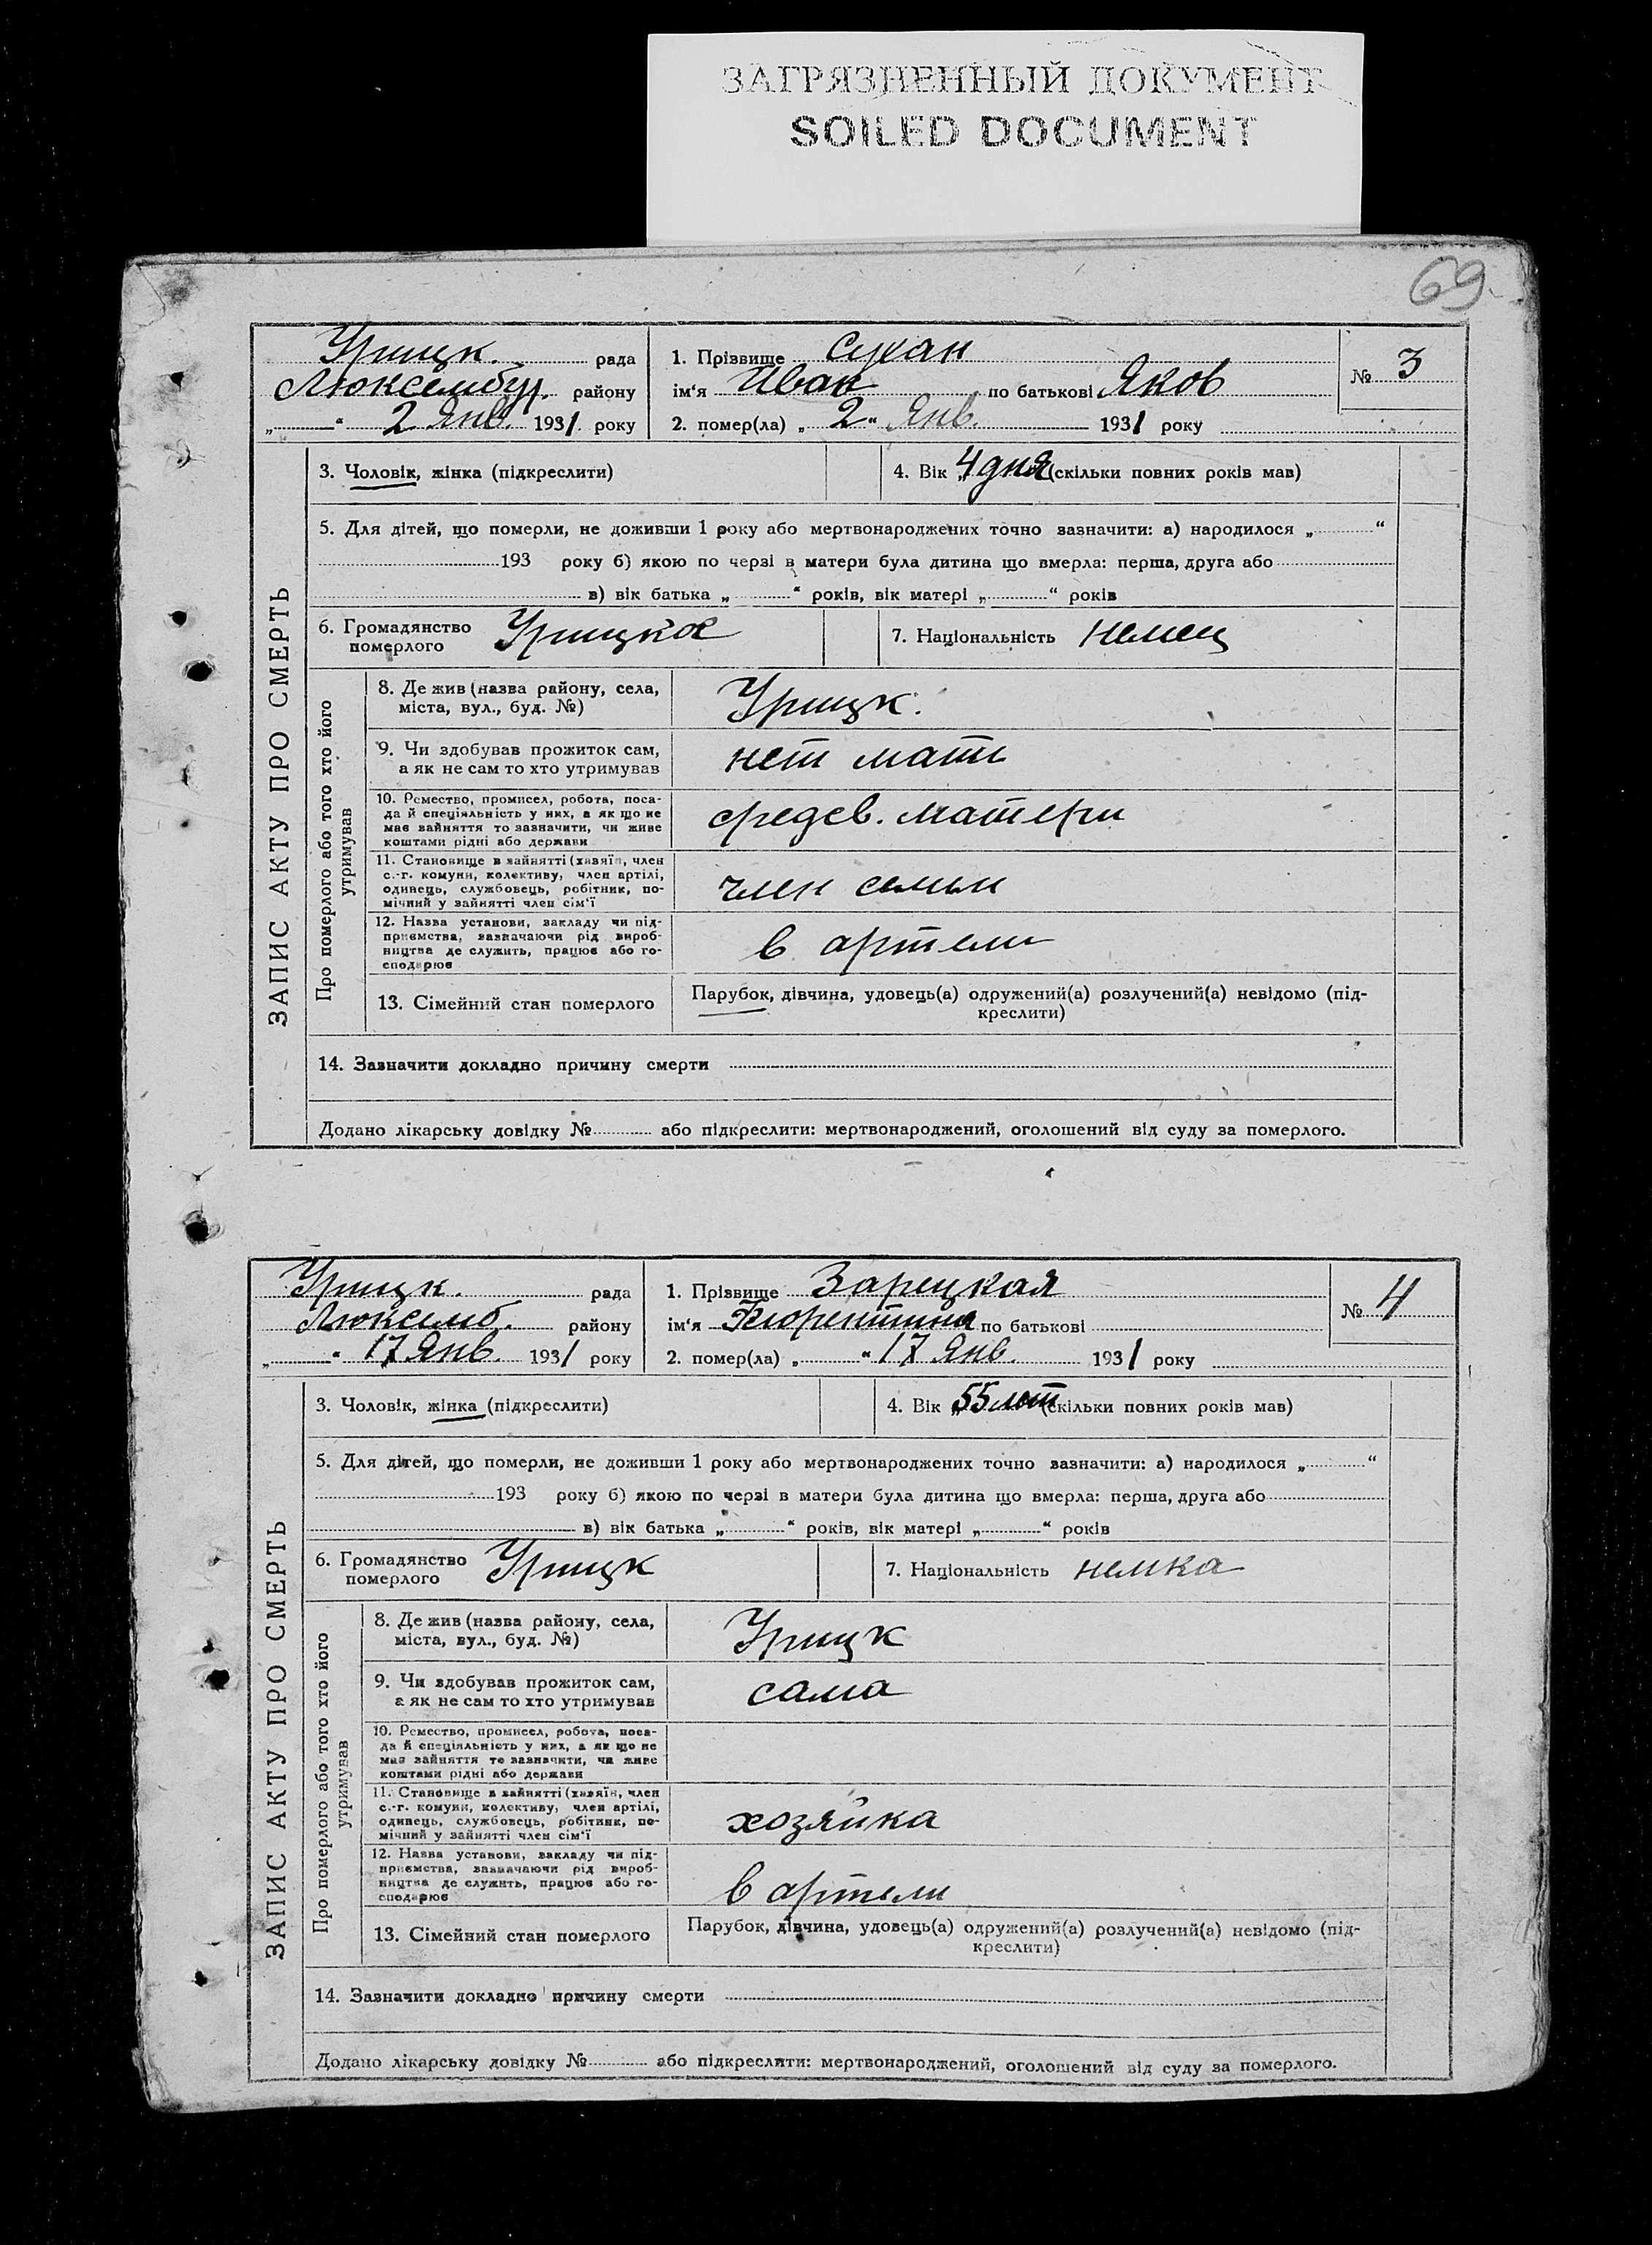 ЗАГРЯЗНЕННЫЙ ДОКУМЕНТ
SOILED DOCUMENT
69
Урицк. рада
Люксембур. району
„ “ 2 Янв. 1931. року
1. Прізвище Сукан
ім‘я Иван по батькові Яков
2. помер(ла) „ 2 “ Янв. 1931 року
№ 3
ЗАПИС АКТУ ПРО СМЕРТЬ
3. Чоловік, жінка (підкреслити)
4. Вік „ 4 дня (скільки повних років мав)
5. Для дітей, що померли, не доживши 1 року або мертвонароджених точно зазначити: а) народилося „ “
193 року б) якою по черзі в матери була дитина що вмерла: перша, друга або
в) вік батька „ “ років, вік матері „ “ років
6. Громадянство
померлого
Урицкое
7. Національність немец
Про померлого або того хто його
утримував
8. Де жив (назва району, села,
міста, вул., буд. №)
Урицк.
9. Чи здобував прожиток сам,
а як не сам то хто утримував
нет мать
10. Ремество, промисел, робота, поса-
да й спеціяльність у них, а як що не
має зайняття то зазначити, чи живе
коштами рідні або держави
средсв. матери
11. Становище в зайнятті (хазяїн, член
с.-г. комуни, колективу, член артілі,
одинець, службовець, робітник, по-
мічний у зайнятті член сім‘ї
член семьи
12. Назва установи, закладу чи під-
приємства, зазначаючи рід вироб-
ництва де служить, працює або го-
сподарює
в артели
13. Сімейний стан померлого
Парубок, дівчина, удовець(а) одружений(а) розлучений(а) невідомо (під-
креслити)
14. Зазначити докладно причину смерти
Додано лікарську довідку № або підкреслити: мертвонароджений, оголошений від суду за померлого.
Урицк. рада
Люксемб. району
„ “ 17 Янв. 1931 року
1. Прізвище Зарецкая
ім‘я Флорентина по батькові
2. помер(ла) „ “ 17 Янв. 1931 року
№ 4
ЗАПИС АКТУ ПРО СМЕРТЬ
3. Чоловік, жінка (підкреслити)
4. Вік „ 55 лет (скільки повних років мав)
5. Для дітей, що померли, не доживши 1 року або мертвонароджених точно зазначити: а) народилося „ “
193 року б) якою по черзі в матери була дитина що вмерла: перша, друга або
в) вік батька „ “ років, вік матері „ “ років
6. Громадянство
померлого
Урицк
7. Національність немка
Про померлого або того хто його
утримував
8. Де жив (назва району, села,
міста, вул., буд. №)
Урицк
9. Чи здобував прожиток сам,
а як не сам то хто утримував
сама
10. Ремество, промисел, робота, поса-
да й спеціяльність у них, а як що не
має зайняття то зазначити, чи живе
коштами рідні або держави
11. Становище в зайнятті (хазяїн, член
с.-г. комуни, колективу, член артілі,
одинець, службовець, робітник, по-
мічний у зайнятті член сім‘ї
хозяйка
12. Назва установи, закладу чи під-
приємства, зазначаючи рід вироб-
ництва де служить, працює або го-
сподарює
в артели
13. Сімейний стан померлого
Парубок, дівчина, удовець(а) одружений(а) розлучений(а) невідомо (під-
креслити)
14. Зазначити докладно причину смерти
Додано лікарську довідку № або підкреслити: мертвонароджений, оголошений від суду за померлого.